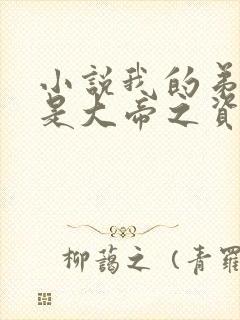 小說我的弟
是大帝之資
柳藹之（青羅